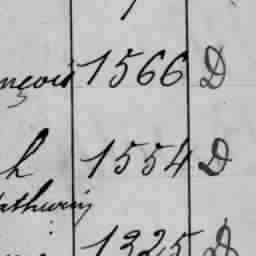 nçois 1566 D
h 1554 D
athurin
1325 D